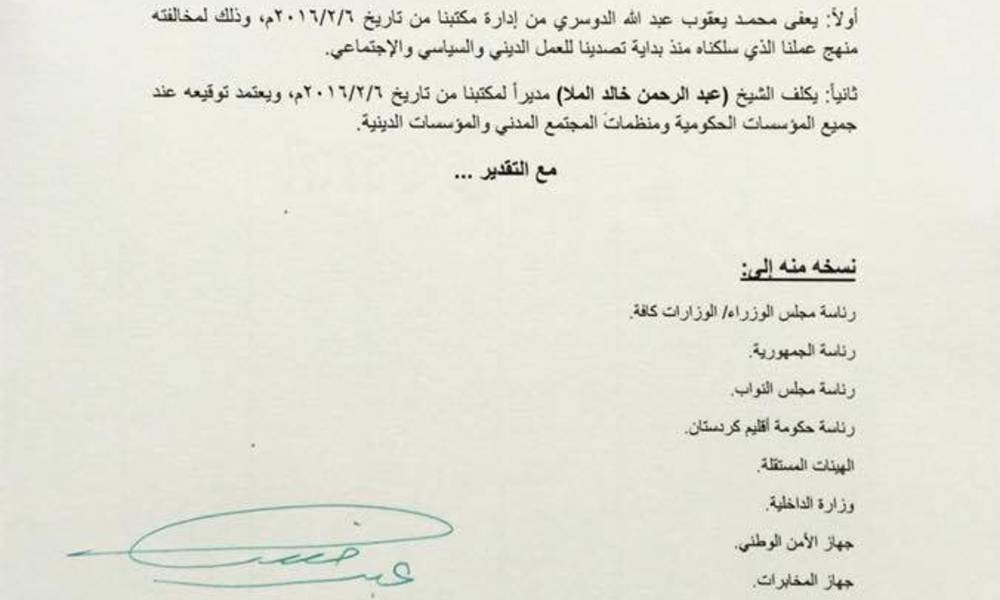 أولاً: يعفى محمد يعقوب عبد الله الدوسري من إدارة مكتبنا من تاريخ ٢٠١٦/٢/٦م، وذلك لمخالفته
منهج عملنا الذي سلكناه منذ بداية تصدينا للعمل الديني والسياسي والإجتماعي.
ثانياً: يكلف الشيخ (عبد الرحمن خالد الملا) مديراً لمكتبنا من تاريخ ٢٠١٦/٢/٦م، ويعتمد توقيعه عند
جميع المؤسسات الحكومية ومنظمات المجتمع المدني والمؤسسات الدينية.
مع التقدير ...
نسخه منه إلى:
رئاسة مجلس الوزراء/ الوزارات كافة.
رئاسة الجمهورية.
رئاسة مجلس النواب.
رئاسة حكومة أقليم كردستان.
الهيئات المستقلة.
وزارة الداخلية.
جهاز الأمن الوطني.
جهاز المخابرات.